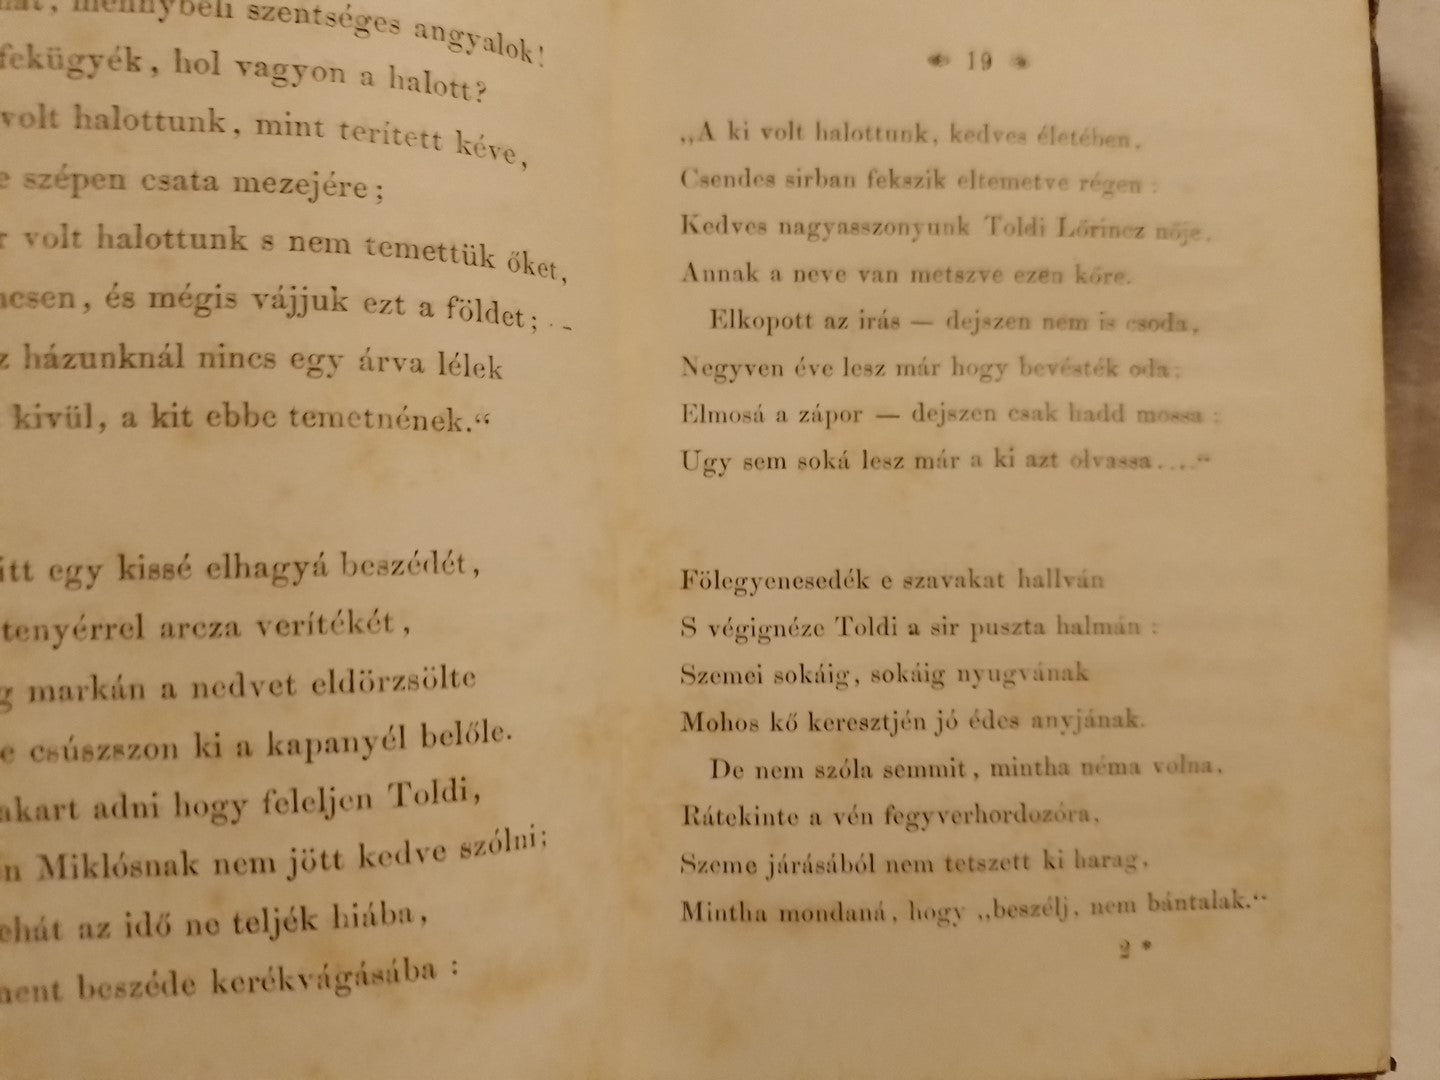 mennybéli szentséges angyalok!
fekügyék, hol vagyon a halott?
volt halottunk, mint terített kéve,
szépen csata mezejére;
volt halottunk s nem temettük őket,
és mégis vájjuk ezt a földet;
házunknál nincs egy árva lélek
kivül, a kit ebbe temetnének.“
egy kissé elhagyá beszédét,
tenyérrel arcza verítékét,
markán a nedvet eldörzsölte
csúszszon ki a kapanyél belőle.
akart adni hogy feleljen Toldi,
Miklósnak nem jött kedve szólni;
az idő ne teljék hiába,
beszéde kerékvágásába :
19
„A ki volt halottunk, kedves életében,
Csendes sirban fekszik eltemetve régen :
Kedves nagyasszonyunk Toldi Lőrincz nője,
Annak a neve van metszve ezen kőre.
Elkopott az irás — dejszen nem is csoda,
Negyven éve lesz már hogy bevésték oda;
Elmosá a zápor — dejszen csak hadd mossa :
Ugy sem soká lesz már a ki azt olvassa....“
Fölegyenesedék e szavakat hallván
S végignéze Toldi a sir puszta halmán :
Szemei sokáig, sokáig nyugvának
Mohos kő keresztjén jó édes anyjának.
De nem szóla semmit, mintha néma volna,
Rátekinte a vén fegyverhordozóra,
Szeme járásából nem tetszett ki harag,
Mintha mondaná, hogy „beszélj, nem bántalak.“
2 *